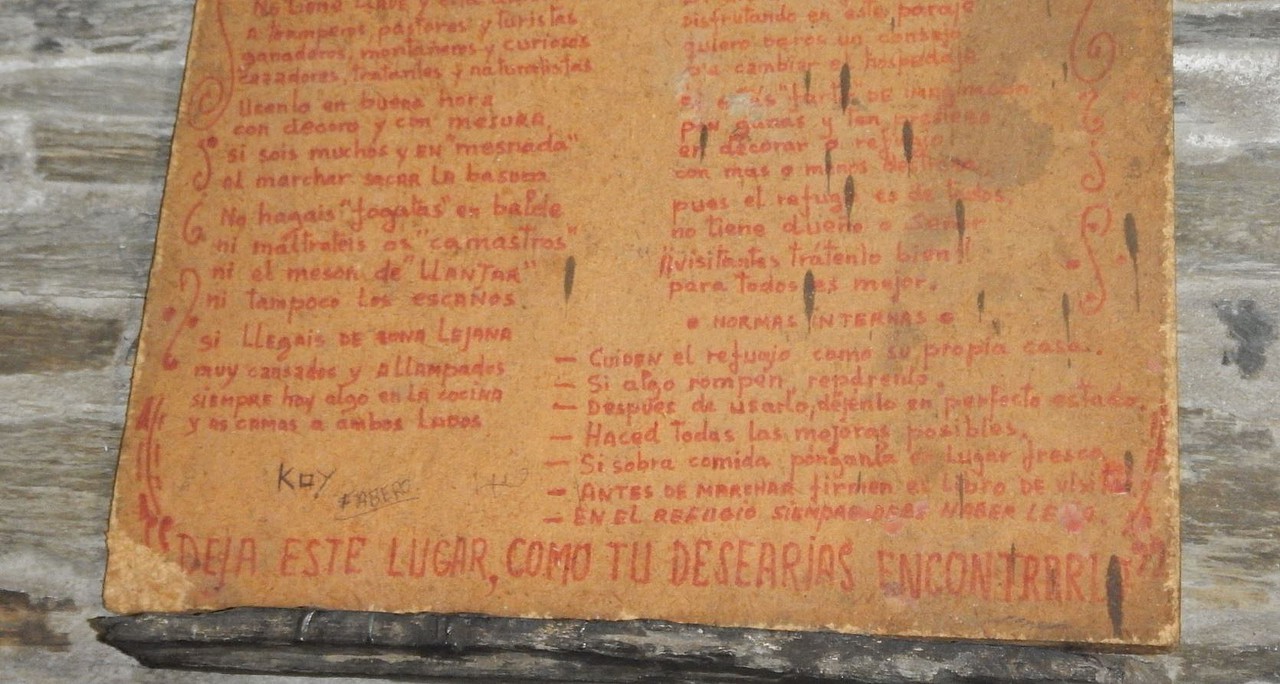 No tiene LLAVE y
a tramperos, pastores y turistas
ganaderos, montañeros y curiosos
cazadores, tratantes y naturalistas
Usenlo en buena hora
con decoro y con mesura
si sois muchos y EN "mesnada"
al marchar sacar La basura
No hagais "fogatas" en balde
ni maltrateis os "camastros"
ni el meson de "LLANTAR"
ni tampoco los escaños.
si LLegais DE zona Lejana
muy cansados y ALLampados
siempre hay algo en La cocina
y as camas a ambos Lados
KOY
FABERO
disfrutando en este paraje
quiero daros un consejo
cambiar el hospedaje
DE
y ten
en decorar refugio
con mas o menos
pues el refugio es de todos
no tiene dueño o Señor
¡¡visitantes trátenlo bien!!
para todos es mejor.
NORMAS INTERNAS
— Cuiden el refugio como su propia casa.
— Si algo rompen, repárenlo.
— Despues de usarlo, déjenlo en perfecto estado.
— Haced Todas las mejoras posibles.
— Si sobra comida ponganla en Lugar fresco
— ANTES DE MARCHAR firmen el Libro DE visitas
— EN EL REFUGIO SIEMPRE DEBE HABER LEÑA.
DEJA ESTE LUGAR, COMO TU DESEARIAS ENCONTRARLO